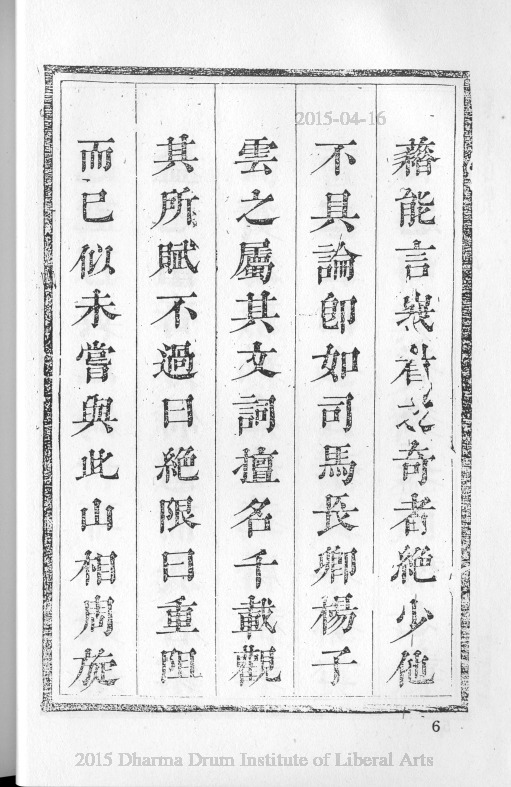 2015-04-16
能言峩眉之奇者絶少他
不具論卽如司馬長卿楊子
雲之屬其文詞擅名千載觀
其所賦不過曰絶限曰重阻
而已似未嘗與此山相周旋
6
2015 Dharma Drum Institute of Liberal Arts